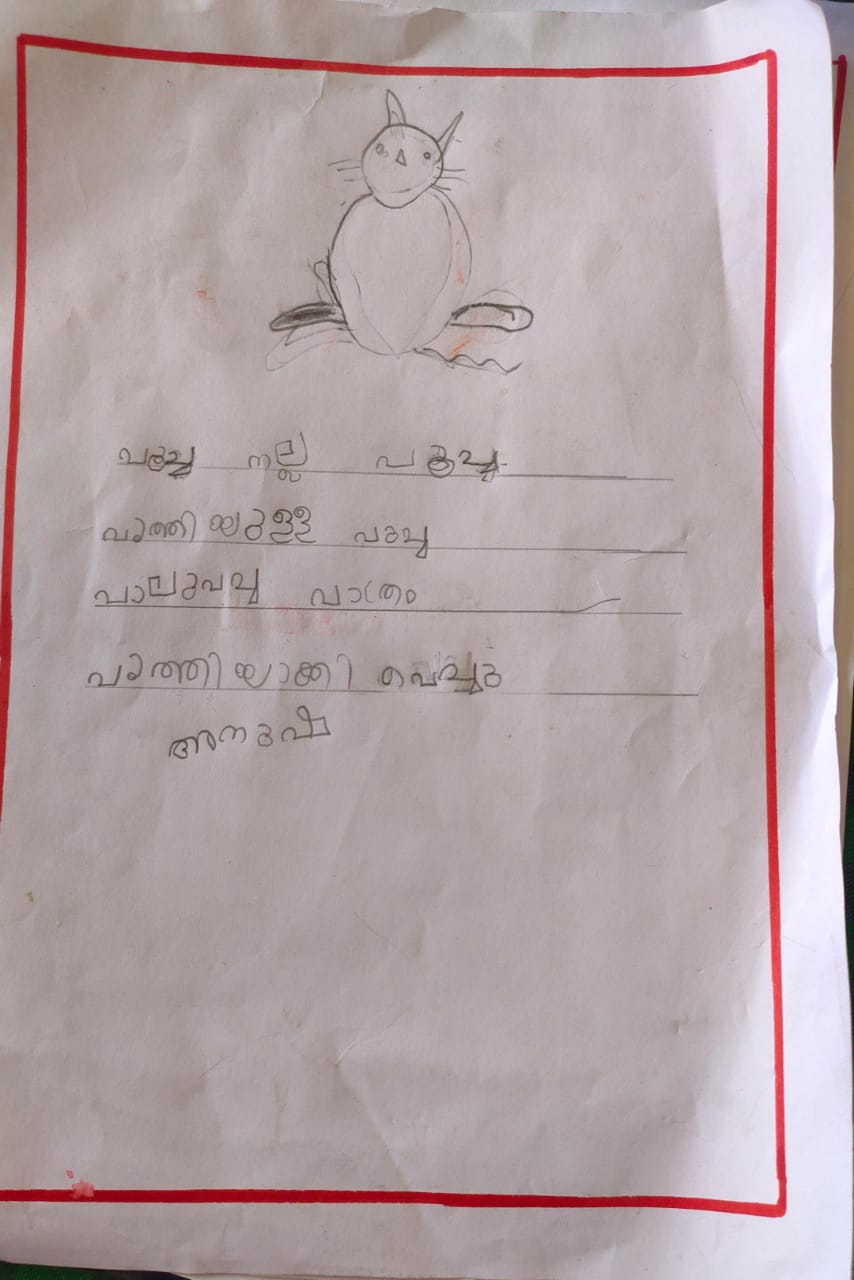 പൂച്ച നല്ല പൂച്ച
വൃത്തിയുള്ള പൂച്ച
പാലുവച്ച പാത്രം
വൃത്തിയാക്കി വെച്ചു
അനുഷ